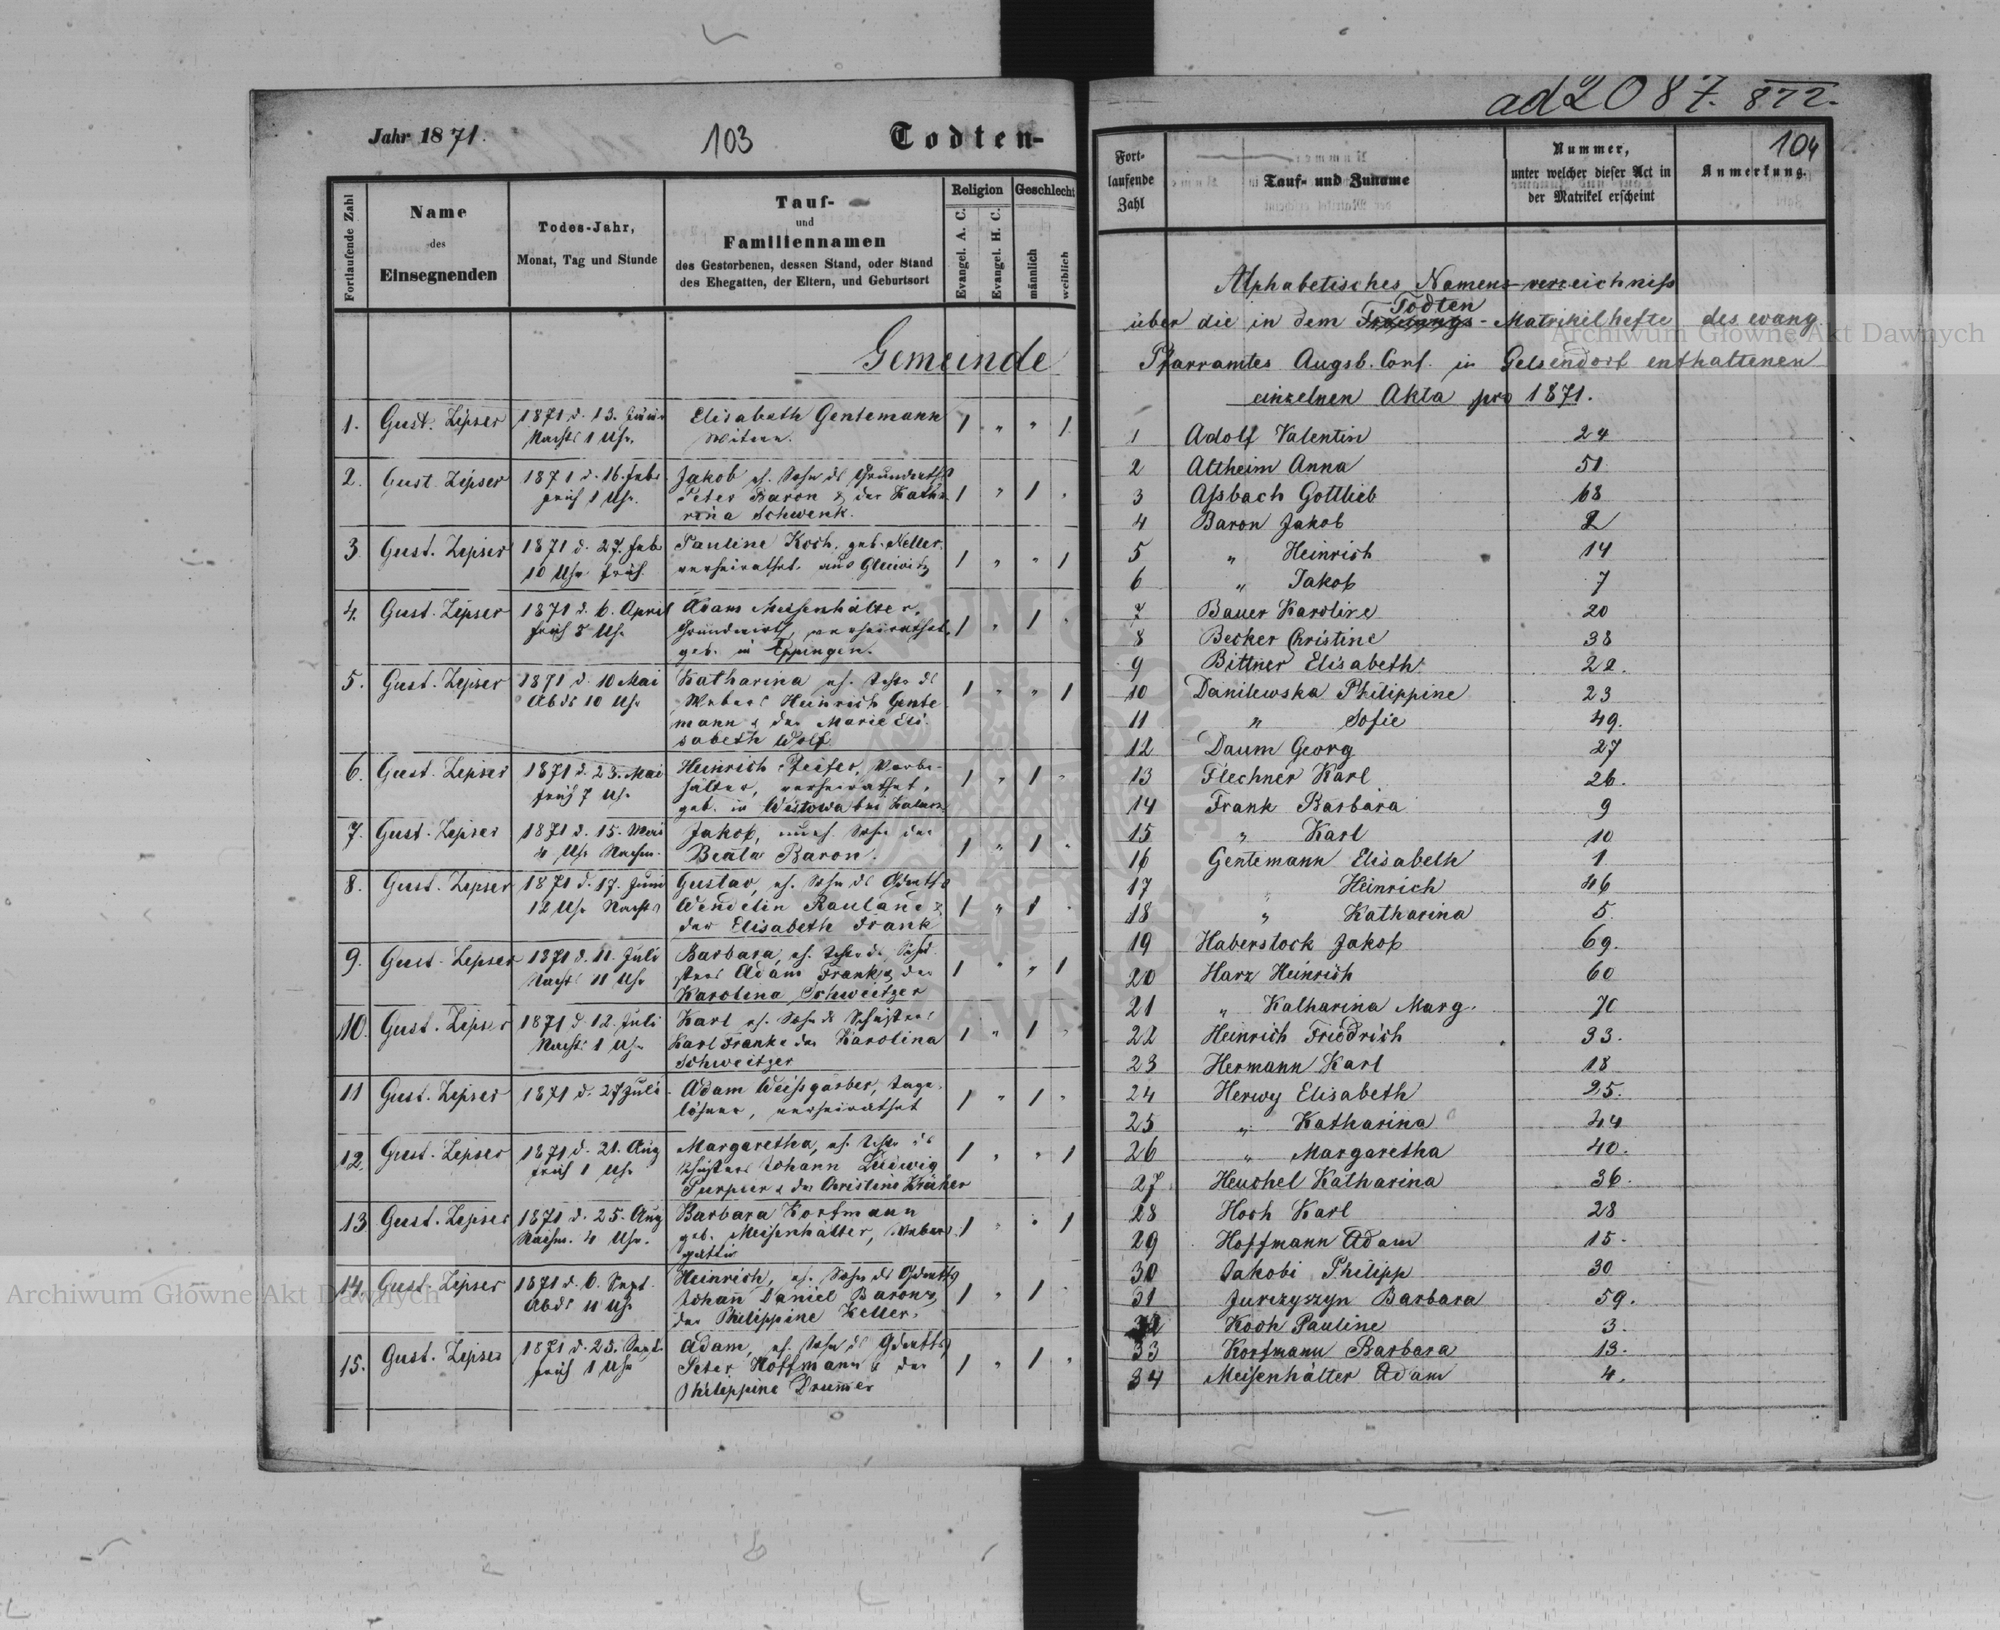 Jahr 1871.
103
Todten-
Fortlaufende Zahl
Name
des
Einsegnenden
Todes-Jahr,
Monat, Tag und Stunde
Tauf-
und
Familiennamen
des Gestorbenen, dessen Stand, oder Stand
des Ehegatten, der Eltern, und Geburtsort
Religion
Evangel. A. C.
Evangel. H. C.
Geschlecht
männlich
weiblich
Gemeinde
1. Gust. Zipser 1871 d. 13. Nachts 1 Uhr. Elisabeth Gentemann 1 " " 1
2. Gust. Zipser 1871 d. 16. Febr früh 1 Uhr. Jakob eh. Sohn ds Grundwirths
Peter Baron & der Katha
rina Schwenk. 1 " 1 "
3. Gust. Zipser 1871 d. 27. Feb
10 Uhr früh. Pauline Koch, geb. Keller,
verheirathet aus 1 " " 1
4. Gust. Zipser 1871 d. 6. April
früh 5 Uhr Adam Meisenhälter,
Grundwirth, verheirathet,
geb. in Eppingen. 1 " 1 "
5. Gust. Zipser 1871 d. 10 Mai
Abds 10 Uhr Katharina eh. Tocht. ds
Webers Heinrich Gente
mann & der Marie Eli
sabeth Wolf 1 " " 1
6. Gust. Zipser 1871 d. 23. Mai
früh 7 Uhr Heinrich Pfeifer, Vorbe-
hälter, verheirathet,
geb. in 1 " 1 "
7. Gust. Zipser 1871 d. 15. Mai
4 Uhr Nachm. Jakob, uneh. Sohn der
Beata Baron. 1 " 1 "
8. Gust. Zipser 1871 d. 17. Juni
12 Uhr Nachts Gustav, eh. Sohn ds Gdwths
Wendelin Rauland &
der Elisabeth Frank 1 " 1 "
9. Gust. Zipser 1871 d. 11. Juli
Nachts 11 Uhr Barbara, eh. Tocht. ds Schu
sters Adam Frank & der
Karolina Schweitzer 1 " " 1
10. Gust. Zipser 1871 d. 12. Juli
Nachts 1 Uhr Karl eh. Sohn ds Schusters
Karl Frank & der Karolina
Schweitzer 1 " 1 "
11 Gust. Zipser 1871 d. 27 Juli Adam Weißgärber, Tage-
löhner, verheirathet 1 " 1 "
12. Gust. Zipser 1871 d. 21. Aug
früh 1 Uhr Margaretha, eh. Tocht. ds
Schusters Johann Ludwig
Purpur & der Christine 1 " " 1
13 Gust. Zipser 1871 d. 25. Aug
Nachm. 4 Uhr. Barbara Korfmann
geb. Meisenhälter, Webers
gattin 1 " " 1
14. Gust. Zipser 1871 d. 6. Sept.
Abds 11 Uhr Heinrich, eh. Sohn ds Gdwths
Johann Daniel Baron &
der Philippine Keller. 1 " 1 "
15. Gust. Zipser 1871 d. 23. Sept.
früh 1 Uhr Adam, eh. Sohn ds Gdwths
Peter Hoffmann & der
Philippine Drumer 1 " 1 "
ad 2087. 872.
104
Fort-
laufende
Zahl
Tauf- und Zuname
Nummer,
unter welcher dieser Act in
der Matrikel erscheint
Anmerkung.
Alphabetisches Namens-verzeichniß
Todten
über die in dem Trauungs-Matrikelhefte des evang
Pfarramtes Augsb. Conf. in Gelsendorf enthaltenen
einzelnen Akta pro 1871.
1 Adolf Valentin 24
2 Altheim Anna 51
3 Aßbach Gottlieb 68
4 Baron Jakob 2
5 " Heinrich 14
6 " Jakob 7
7 Bauer Karoline 20
8 Becker Christine 38
9 Bittner Elisabeth 22.
10 Danilewska Philippine 23
11 " Sofie 49.
12 Daum Georg 27
13 Flechner Karl 26.
14 Frank Barbara 9
15 " Karl 10
16 Gentemann Elisabeth 1
17 " Heinrich 46
18 " Katharina 5.
19 Haberstock Jakob 69.
20 Harz Heinrich 60
21 " Katharina Marg. 70
22 Heinrich Friedrich 33.
23 Hermann Karl 18
24 Herwy Elisabeth 25.
25 " Katharina 44
26 " Margaretha 40.
27 Heuchel Katharina 36.
28 Hoch Karl 28
29 Hoffmann Adam 15.
30 Jakobi Philipp 30
31 Jurczyszyn Barbara 59.
32 Koch Pauline 3.
33 Korfmann Barbara 13.
34 Meisenhälter Adam 4.
Archiwum Główne Akt Dawnych
Archiwum Główne Akt Dawnych